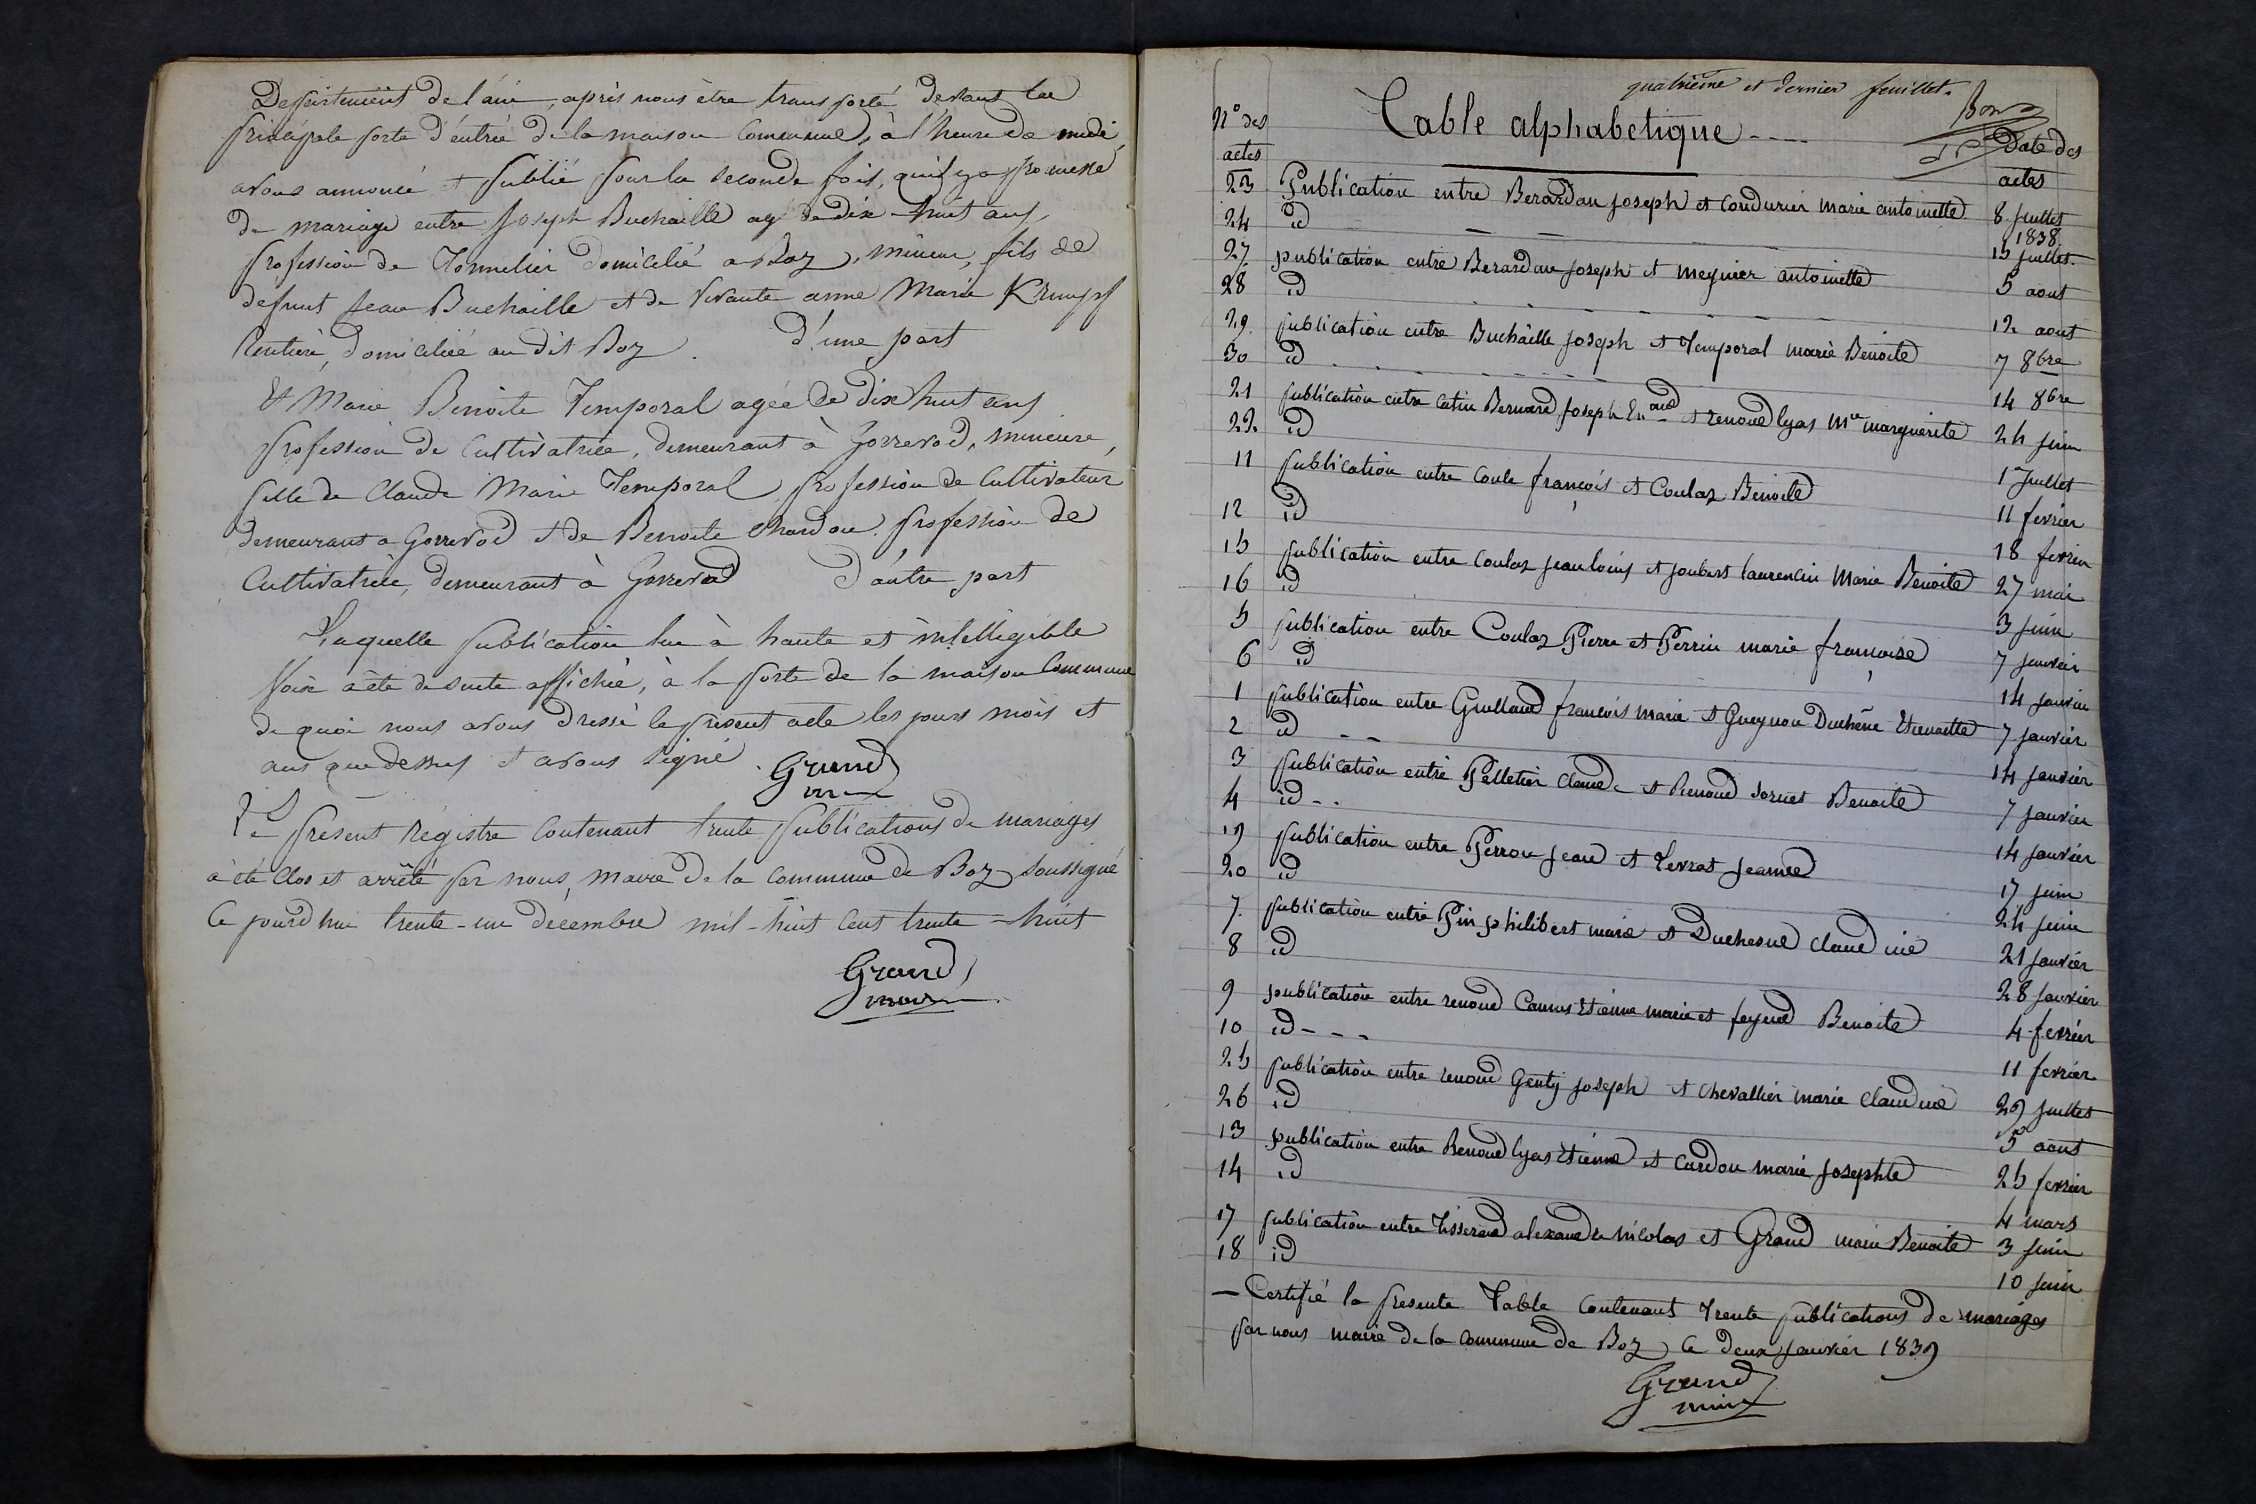 Departement de l'ain, après nous être transporté devant la
principale porte d'éntrée de la maison Commune, à l'heure de midi,
avons annoncé et publié pour la seconde fois, qu'il y a promesse
de mariage entre Joseph Buchaille agé de dix-huit ans
profession de Tonnelier domicilié a Boz, mineur, fils de
defunt Jean Buchaille et de vivante anne Marie Krumpf
Rentiere, domiciliée au dit Boz . d'une part
Et Marie Benoite Temporal agée de dix huit ans
profession de Cultivatrice, demeurant à Gorrevod, mineure,
fille de Claude Marie Temporal profession de Cultivateur
demeurant a Gorrevod et de Benoite Chardon profession de
Cultivatrice, demeurant à Gorrevod d'autre part
Laquelle publication lue à haute et intelligible
Voix a été de suite affichée, à la porte de la maison Commune
de quoi nous avons dressé le présent acte les jours mois et
ans que dessus et avons signé. Grand
Le présent registre Contenant trente publications de mariages
à été clos et arrêté par nous, maire de la commune de Boz soussigné
Ce jourd'hui trente-un décembre mil-huit cent trente-huit
Grand
maire
quatrième et dernier feuillet.
Table alphabetique
N° des actes
Date des actes
23 Publication entre Berardan Joseph et Condurier marie antoinette 8 Juillet 1838
24 id 15 Juillet.
27 publication entre Berardan Joseph et meynier antoinette 5 aout
28 id 12 aout
29. publication entre Buchaille Joseph et Temporal marie Benoite 7 8bre
30 id 14 8bre
21 publication entre Catin Bernard Joseph et renoud lyas Mie marguerite 24 juin
22. id 1 Juillet
11 publication entre Coulas françois et Coulas Benoite 11 fevrier
12 id 18 fevrier
15 publication entre Coulas Jean louis et Joubert laurencin Marie Benoite 27 mai
16 id 3 juin
5 publication entre Coulas Pierre et Perrin marie françoise 7 janvier
6 id 14 janvier
1 publication entre Guilland françois marie et Gueynon Duchêne Etiennette 7 janvier
2 id 14 janvier
3 publication entre Pelletier Claude et Renoud Sornet Benoite 7 janvier
4 id 14 janvier
19 publication entre Perron Jean et Levrat Jeanne 17 juin
20 id 24 juin
7. publication entre Pin philibert marie et Duchesne claudine 21 janvier
8 id 28 janvier
9 publication entre renoud Camus Etienne marie et feyeud Benoite 4 fevrier
10 id 11 fevrier
25 publication entre renoud Genty Joseph et Chevallier marie claudine 29 juillet
26 id 5 aout
13 publication entre Renoud lyas Etienne et Cardon marie Josephte 25 fevrier
14 id 4 mars
17 publication entre Tisserand alexandre Nicolas et Grand marie Benoite 3 juin
18 id 10 juin
Certifié la presente Table Contenant Trente publications de mariages
par nous maire de la commune de Boz, Ce deux janvier 1839
Grand
maire